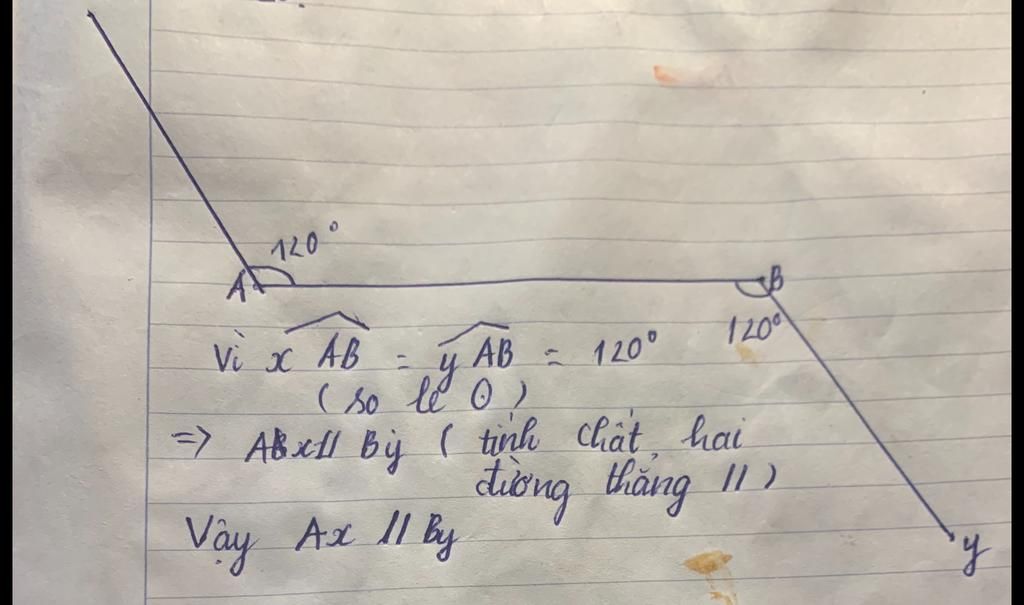 120°
A
B
120°
Vì xAB = yAB = 120°
(so le ⊙)
=> Ax // By ( tính chất hai
đường thẳng // )
Vậy Ax // By
y